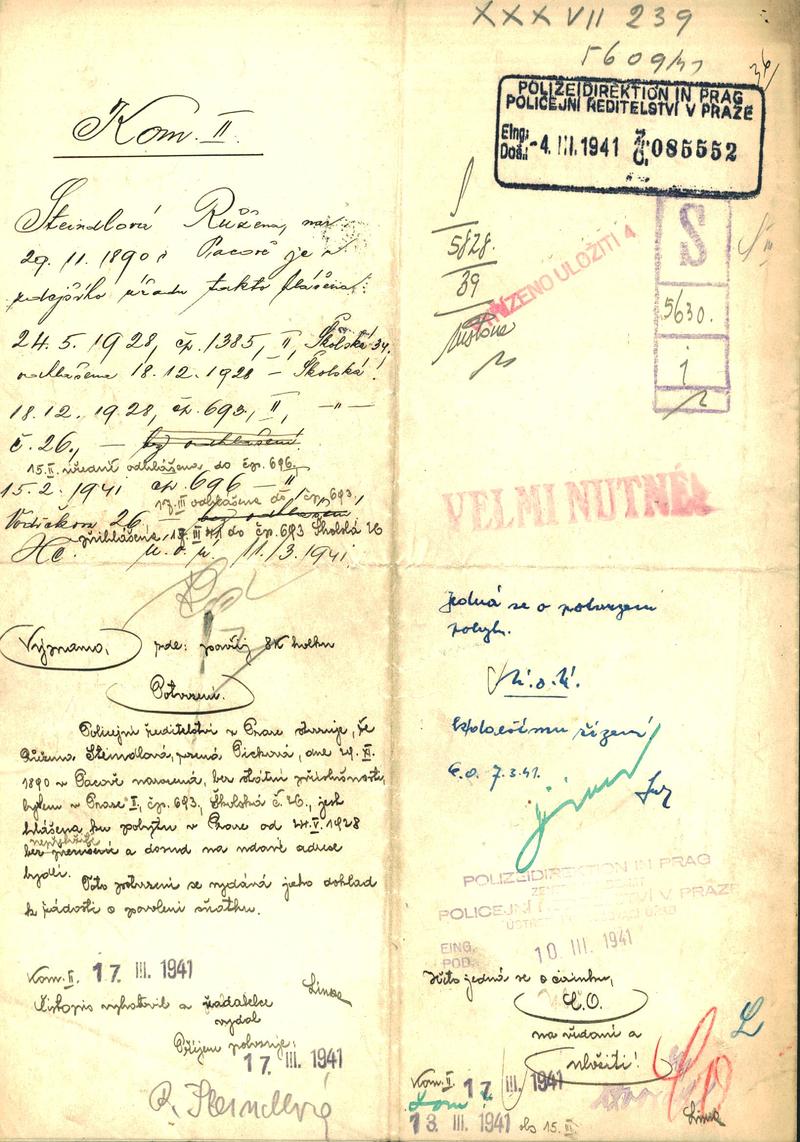 XXXVII 239
5609/41
POLIZEIDIREKTION IN PRAG
POLICEJNÍ ŘEDITELSTVÍ V PRAZE
Eing.
Doš. -4. III. 1941 085552
Kom. II
Steindlová Růžena, nar.
29. 11. 1890 v Pacově je u
zdejšího úřadu takto hlášena:
24. 5. 1928, čp. 1385, II, Školská 34,
odhlášena 18. 12. 1928 – Školská
18. 12. 1928, čp. 693, II, – " –
č. 26, — bez odhlášení.
15. II. úředně odhlášena do čp. 696
15. 2. 1941 čp. 696 – II
17. III odhlášena do čp 693,
Vodičkova 26 – bez odhlášení
přihlášena 17. III 41 do čp. 693 Školská 26
11/3. 1941
S
5828.
39
ZAŘÍZENO ULOŽITI 4
S
5630.
1
VELMI NUTNÉ
Jedná se o potvrzení
pobytu.
K dalšímu řízení
7. 3. 41.
Významo, pde: použij 8K kolku
Potvrzení.
Policejní ředitelství v Praze stvrzuje, že
Růžena Steindlová, rozená Picková, dne 29. XI.
1890 v Pacově narozená, bez státní příslušnosti,
bytem v Praze II., čp. 693, Školská č. 26, jest
hlášena ku pobytu v Praze od 24. V. 1928
nepřetržitě
bez přerušení a dosud na udané adrese
bydlí.
Toto potvrzení se vydává jako doklad
k žádosti o povolení sňatku.
POLIZEIDIREKTION IN PRAG
POLICEJNÍ ŘEDITELSTVÍ V PRAZE
EING.
POD. 10. III. 1941
Kom. II. 17. III. 1941
Čistopis vyhotovil a žadatelce
vydal
Příjem potvrzuje:
17. III. 1941
R. Steindlová
jedná se o
na vědomí a
uložiti!
Kom. II. 17. III. 1941
13. III. 1941